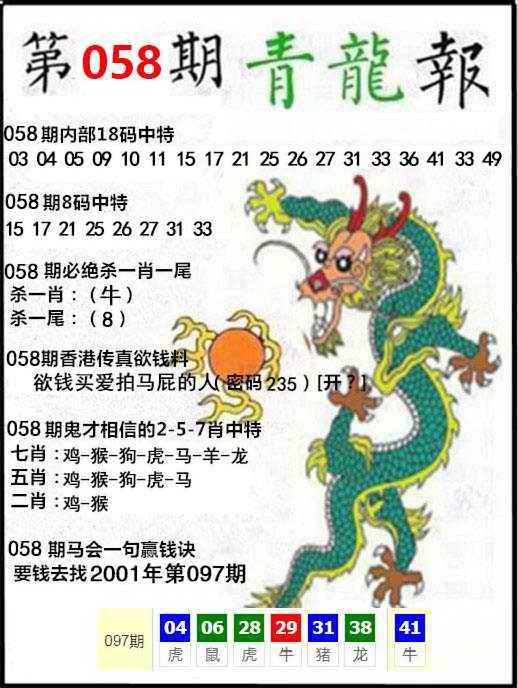 第058期 青龍報
058期内部18码中特
03 04 05 09 10 11 15 17 21 25 26 27 31 33 36 41 33 49
058期8码中特
15 17 21 25 26 27 31 33
058 期必绝杀一肖一尾
杀一肖：（牛）
杀一尾：（8）
058期香港传真欲钱料
欲钱买爱拍马屁的人(密码235）[开？]
058期鬼才相信的2-5-7肖中特
七肖：鸡-猴-狗-虎-马-羊-龙
五肖：鸡-猴-狗-虎-马
二肖：鸡-猴
058 期马会一句赢钱诀
要钱去找2001年第097期
097期 04 06 28 29 31 38 41
虎 鼠 虎 牛 猪 龙 牛